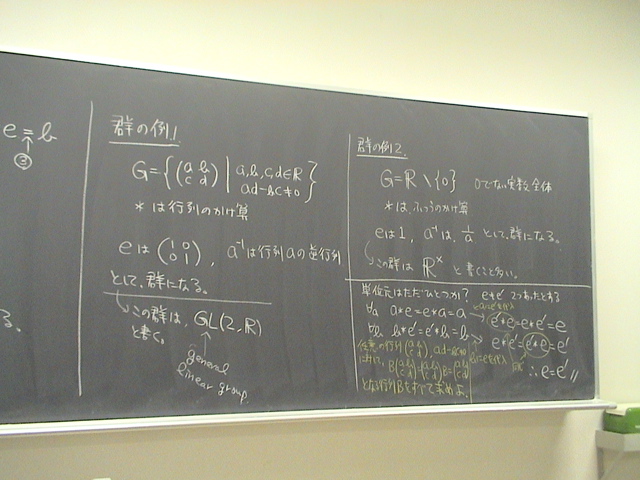 e = b
③
る。
群の例1
G={(a b c d) | a,b,c,d∈R
ad-bc≠0}
* は行列のかけ算
eは (1 0 0 1), a⁻¹は行列aの逆行列
として、群になる。
この群は、GL(2,R)
と書く。
general
linear group
群の例2
G=R\{0} 0でない実数全体
*は、ふつうのかけ算
eは1, a⁻¹は, 1/a として、群になる。
この群は R^× と書くこと多い。
単位元はただひとつか? e≠e' 2つあったとする
∀a a*e=e*a=a
e'*e=e*e'=e
∀b b*e'=e'*b=b
e*e'=e'*e=e'
∴e=e'//
任意の行列(a b c d), ad-bc≠0
に対して、B(a b c d)=(a b c d)B=(a b c d)
となる行列Bをすべて求めよ。